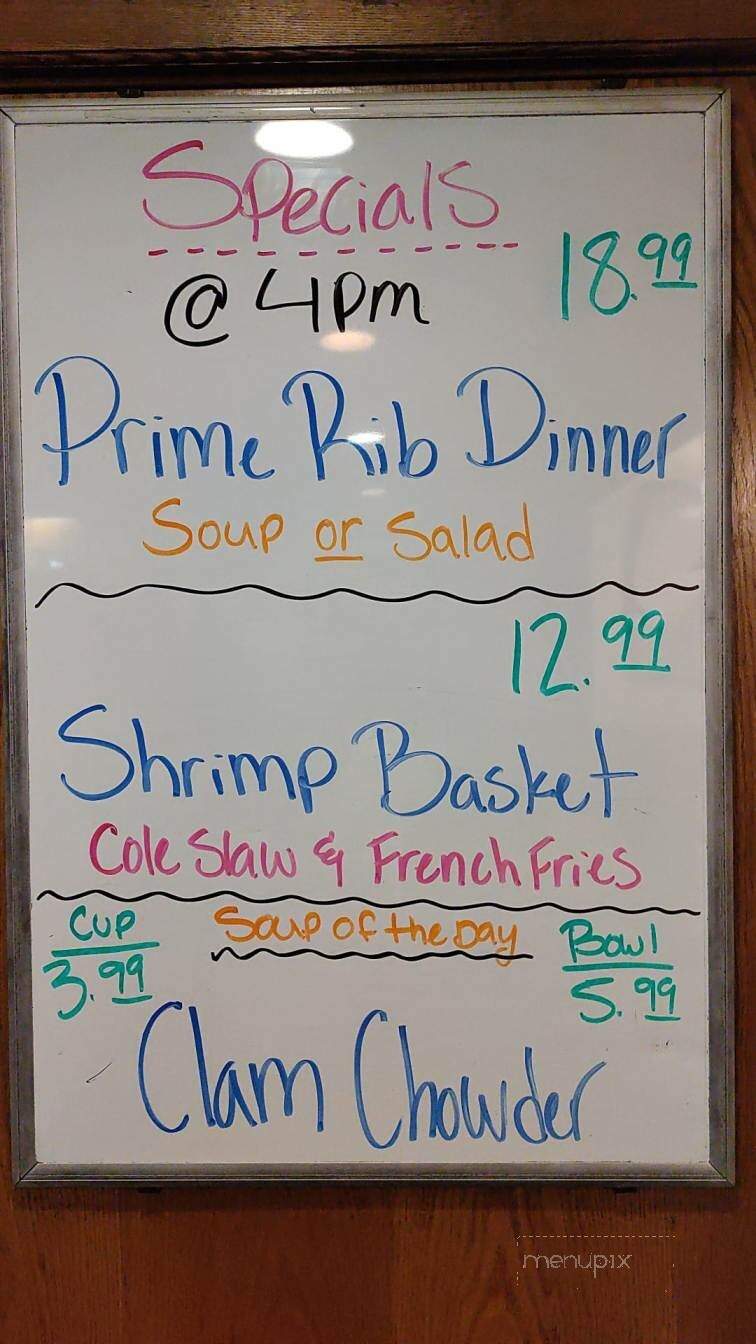 Specials
@ 4pm
18.99
Prime Rib Dinner
Soup or Salad
12.99
Shrimp Basket
Cole Slaw & French Fries
Cup Soup of the Day Bowl
3.99 5.99
Clam Chowder
menupix